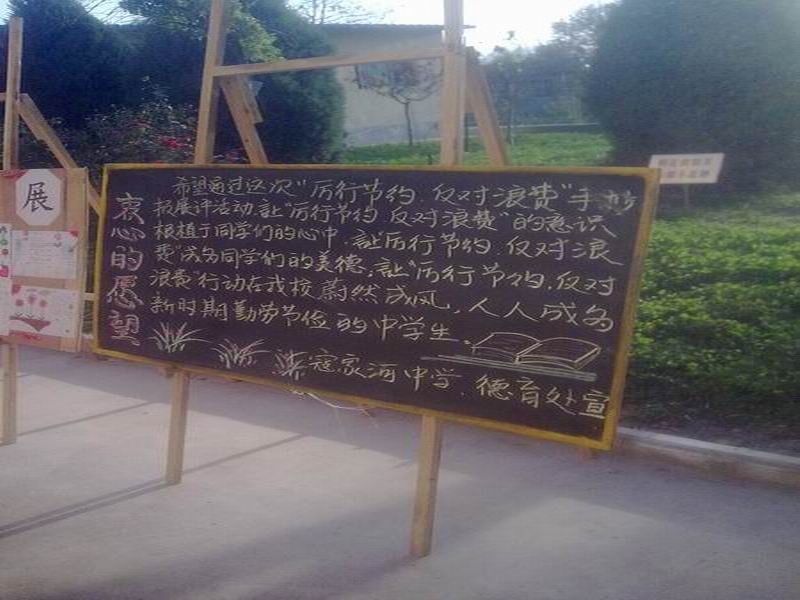 展
衷心的愿望
希望通过这次"厉行节约.反对浪费"手抄
报展评活动.让"厉行节约 反对浪费"的意识
根植于同学们的心中.让"厉行节约 反对浪
费"成为同学们的美德,让"厉行节约.反对
浪费"行动在我校蔚然成风,人人成为
新时期勤劳节俭的中学生.
寇家河中学.德育处宣